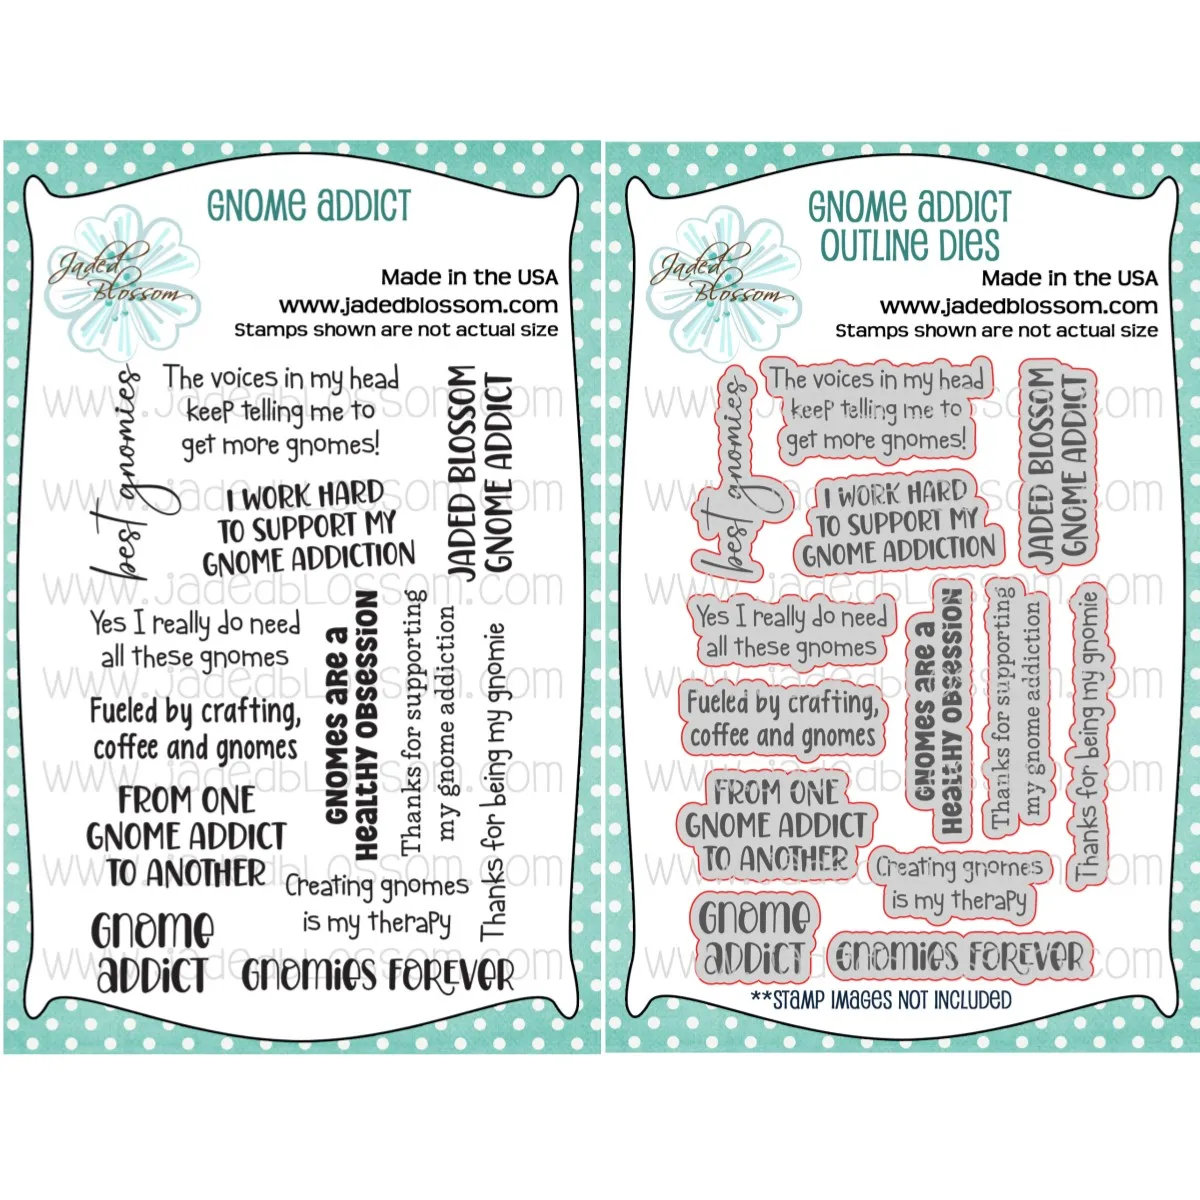 GNOME ADDICT
Jaded
Blossom
Made in the USA
www.jadedblossom.com
Stamps shown are not actual size
www.jadedblossom.com
www.jadedblossom.com
www.jadedblossom.com
www.jadedblossom.com
www.jadedblossom.com
www.jadedblossom.com
www.jadedblossom.com
best gnomies
The voices in my head
keep telling me to
get more gnomes!
JADED BLOSSOM
GNOME ADDICT
I WORK HARD
TO SUPPORT MY
GNOME ADDICTION
Yes I really do need
all these gnomes
GNOMES ARE A
HEALTHY OBSESSION
Thanks for supporting
my gnome addiction
Thanks for being my gnomie
Fueled by crafting,
coffee and gnomes
FROM ONE
GNOME ADDICT
TO ANOTHER
Creating gnomes
is my therapy
GNOME
ADDICT
GNOMIES FOREVER
GNOME ADDICT
OUTLINE DIES
Jaded
Blossom
Made in the USA
www.jadedblossom.com
Stamps shown are not actual size
www.jadedblossom.com
www.jadedblossom.com
www.jadedblossom.com
www.jadedblossom.com
www.jadedblossom.com
www.jadedblossom.com
www.jadedblossom.com
best gnomies
The voices in my head
keep telling me to
get more gnomes!
JADED BLOSSOM
GNOME ADDICT
I WORK HARD
TO SUPPORT MY
GNOME ADDICTION
Yes I really do need
all these gnomes
GNOMES ARE A
HEALTHY OBSESSION
Thanks for supporting
my gnome addiction
Thanks for being my gnomie
Fueled by crafting,
coffee and gnomes
FROM ONE
GNOME ADDICT
TO ANOTHER
Creating gnomes
is my therapy
GNOME
ADDICT
GNOMIES FOREVER
**STAMP IMAGES NOT INCLUDED